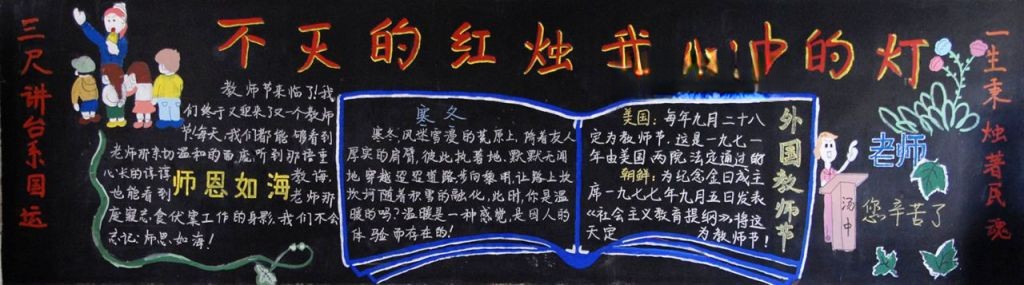 不灭的红烛我心中的灯
三尺讲台系国运
教师节来临了!我
们终于又迎来了又一个教师
节!每天,我们都能够看到
老师那亲切温和的面庞,听到那语重
心长的谆谆教诲,
也能看到老师那
废寝忘食伏案工作的身影,我们不会
忘记:师恩如海!
师恩如海
寒冬
寒冬风迷窅漫的荒原上,倚着友人
厚实的肩臂,彼此执着地,默默无闻
地穿越迢迢道路奔向黎明,让路上坎
坎坷随着积雪的融化,此时,你是温
暖的吗?温暖是一种感觉,是因人的
体验而存在的!
外国教师节
美国:每年九月二十八
定为教师节.这是一九七一
年由美国两院法定通过的
朝鲜:为纪念金日成主
席一九七七年九月五日发表
《社会主义教育提纲》,将这
天定为教师节!
老师
您辛苦了
一生秉烛著民魂